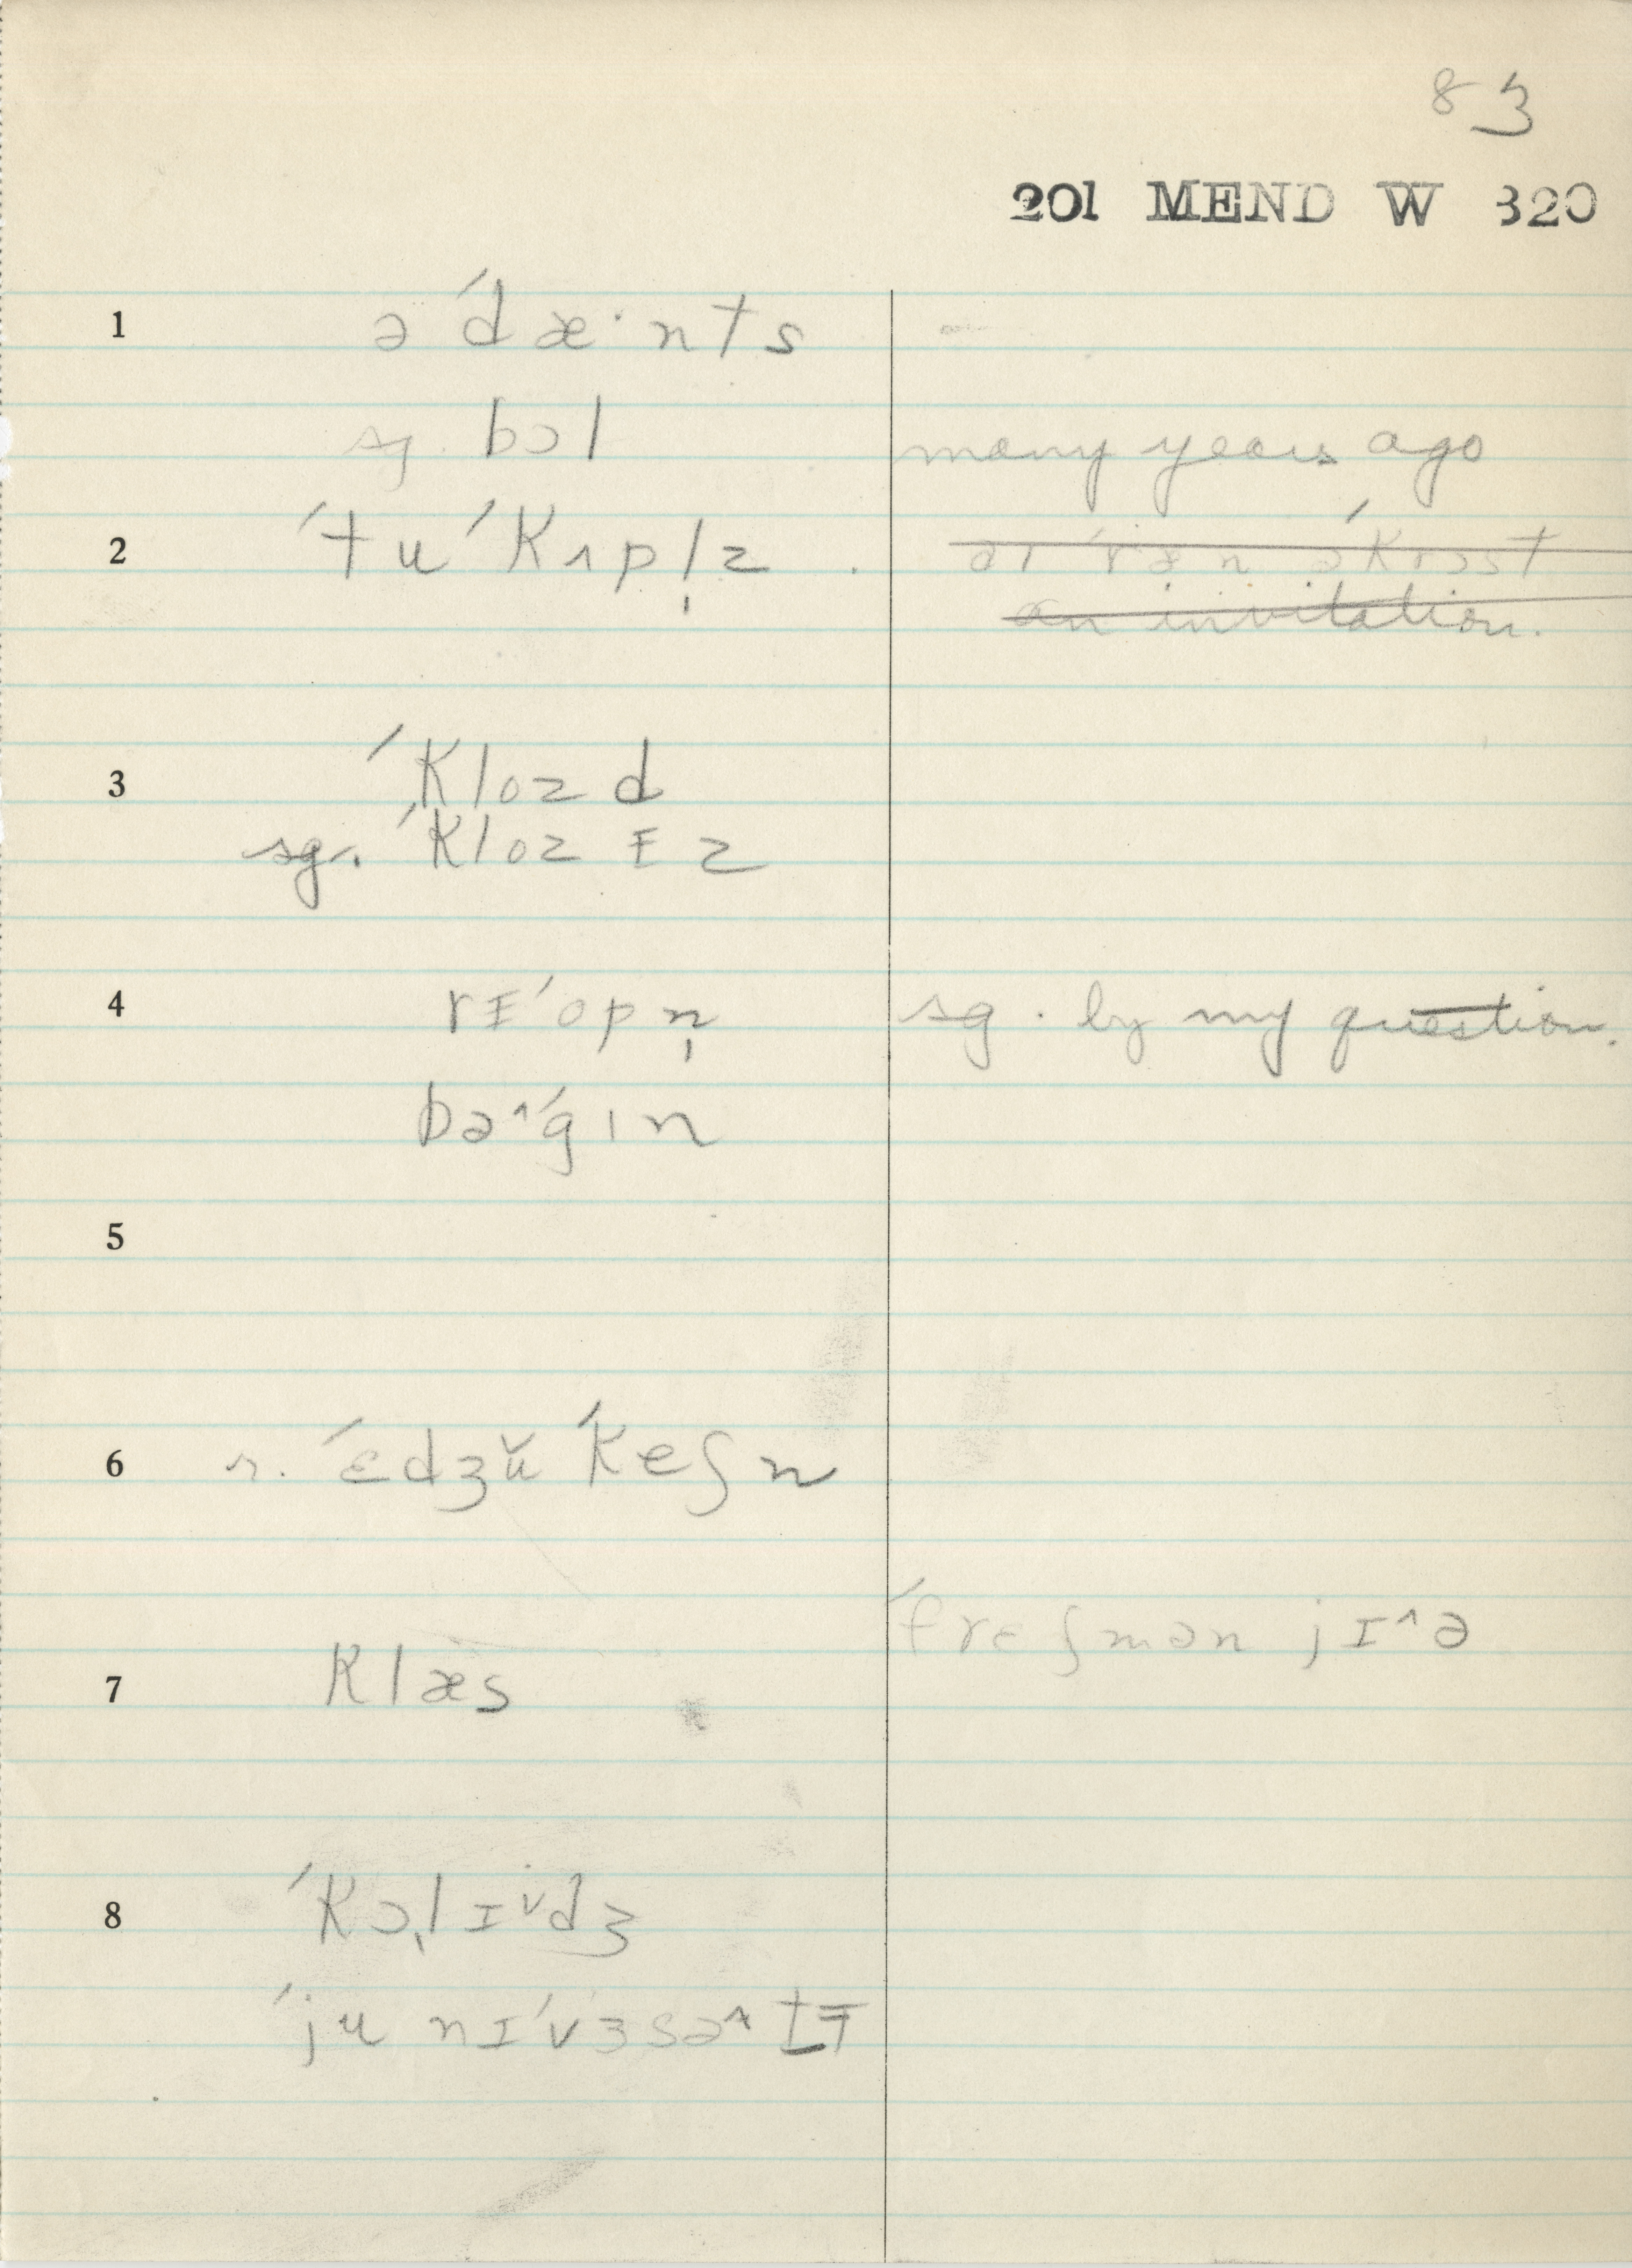 83
201 MEND W 320
1 ə ˈdæ·nts
sg. bɔl many years ago
2 ˈtu ˈkʌpl̩z . aɪ ˈræn əˈkrɔst
an invitation.
3 ˈklozd
sg. ˈklozɪz
4 rɪˈopn̩ sg. by my question.
bə^ˈgɪn
5
6 n. ˈɛdʒŭˈkeʃn
ˈfrɛʃmən jɪ^ə
7 klæs
8 ˈkɔ˛lɪˇdʒ
ˈju nɪˈvɜsə^tɪ